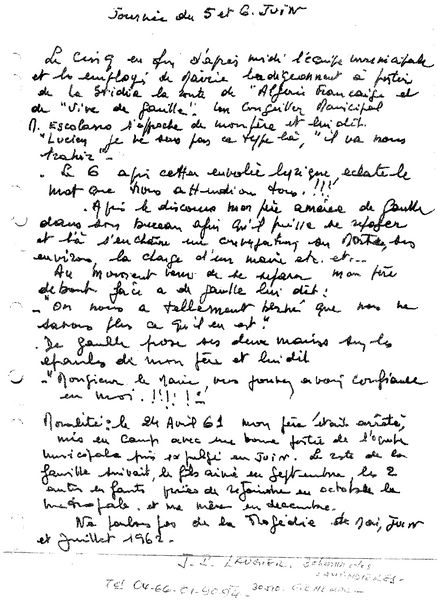 Journée du 5 et 6 Juin
Le Cinq en fin d'après midi l'équipe municipale
et les employé de Mairie badigeonnent à partir
de la Stidia la route de "Algérie Française et
de "Vive de Gaulle". Un Conseiller Municipal
M. Escolano s'approche de mon père et lui dit.
"Lucien je ne sens pas ce type là, "il va nous
trahir -
- Le 6 après cette envolée lyrique, éclate le
mot que nous attendions tous. !!!
- Après le discours mon père amène de Gaulle
dans son bureau afin qu'il puisse se reposer
et là s'enchaîne une conversation sur Mosta, ses
environs, la charge d'un maire etc. et...
Au moment venu de se séparer mon père
debout face a de gaulle lui dit :
- "On nous a tellement berné que nous ne
savons plus ce qu'il en est".
- De gaulle pose ses deux mains sur les
épaules de mon père et lui dit
- "Monsieur le Maire, vous pouvez avoir confiance
en moi. !!!!
Moralité : le 24 Avril 61 mon père était arrêté,
mis en Camp avec une bonne partie de l'équipe
municipale puis expulsé en Juin. Le reste de la
famille suivait, le fils ainé en Septembre les 2
autres enfants priés de rejoindre en octobre la
métropole. et ma mère en decembre.
Ne parlons pas de la Tragédie de Mai, Juin
et Juillet 1962 -
J. P. LAUGIER.
Tel 04-66-01-